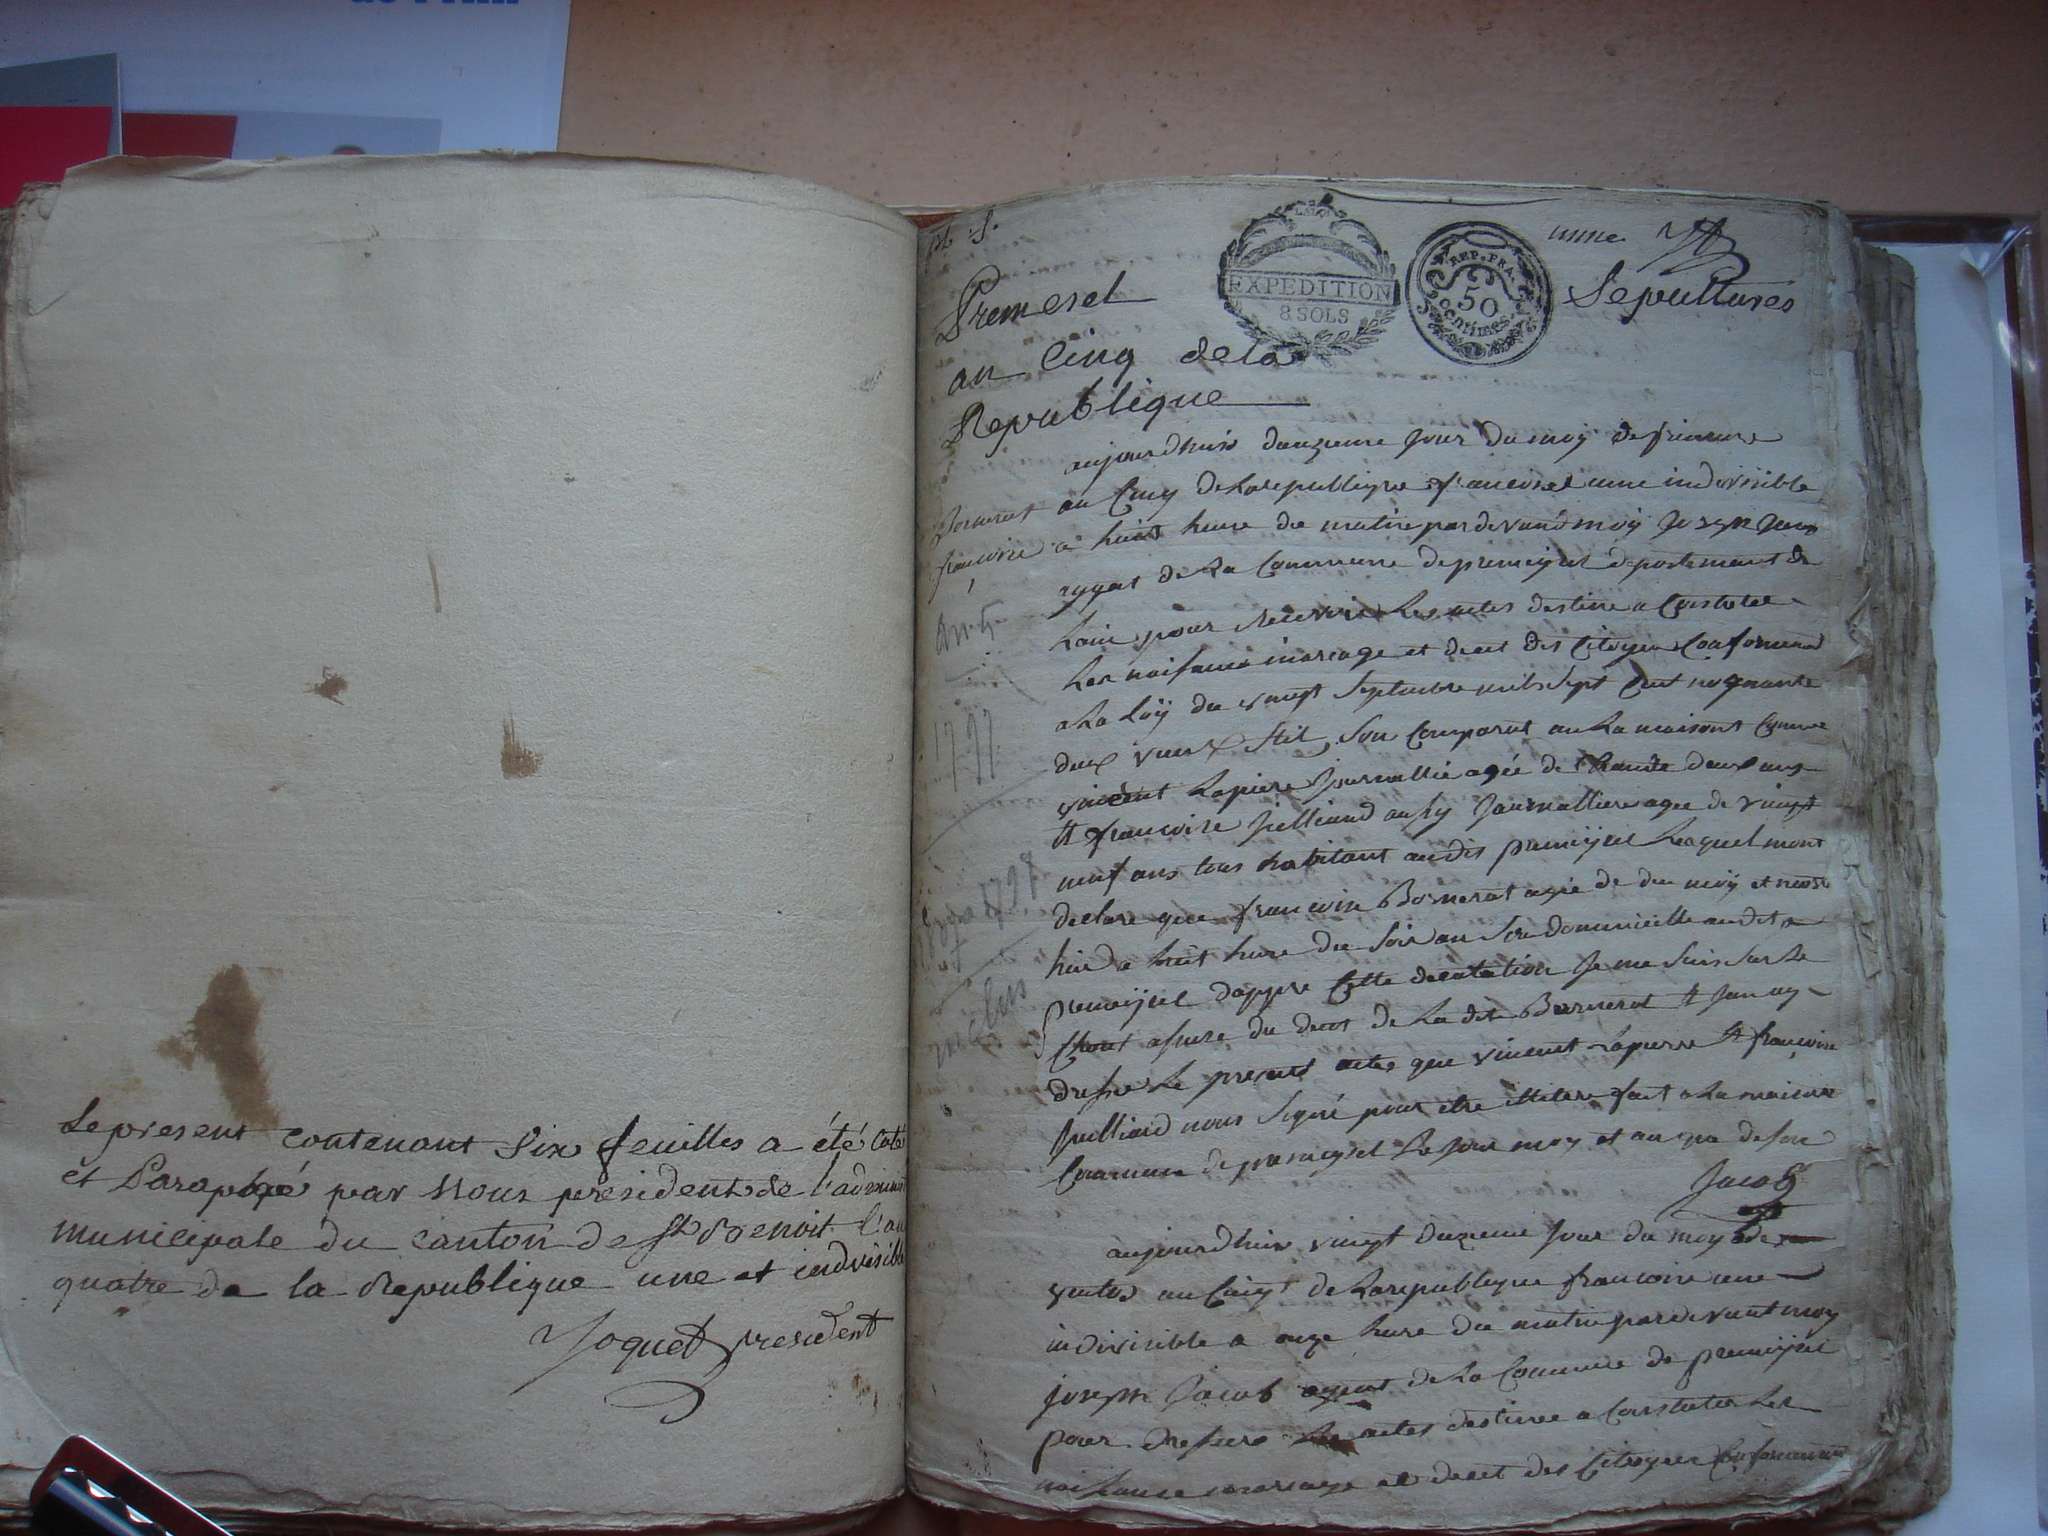 Le present contenant Six feuilles a été coté
et Paraphé par Nous president de l'administ
municipale du Canton de St Benoit l'an
quatre de la Republique une et indivisible
Joquet president
Premesel
EXPEDITION
8 SOLS
REP. FRA.
50
centimes
unne
Sepultures
an Cinq de la
Republique
aujourdhuix douzieme Jour du moy de frimere
Bornerat
francoise
an 5
1797
an Cinq de La republique francoise unne indivisible
a huit heure du matin par devand moy Joseph Jacob
agent de La Commune de premeysel departement de
Lain pour recevoire Les actes destine a Constater
Les naisance mariage et deces des Citoyen Conformement
a La Loÿ du vingt Septembre mil Sept Cent nonante
deux vieux Stil, Son Comparut an La maisont Comune
vincent Lapiere Journallié agée de trante deux ans
et francoise Juilliard ausy Journalliere agee de vingt
neuf ans tous habitant audit premeysel Lequel mont
declare que francoise Bornerat agée de du moÿ et mort
hier a huit heure du Soir an Son domicille audit
premeysel dappre Cette declaration Je me Suis Sur Le
Chant asure du deces de La dite Bornerat et Jan ay
dresse Le present acte que vincent Lapierre et francoise
Juilliard nous Signé pour etre illitere fait a La maison
Commune de premeysel Le Jour moy et an que desu
Jacob
aujourdhuix vingt deuzieme Jour du moy de
ventos an Cinq de La republique francoise une
indivisible a onze heure du matin par devant moy
Joseph Jacob agent de La Commune de premeysel
pour dresser Les actes destinee a Constater Les
naissance mariage et deces des Citoyen Conformement